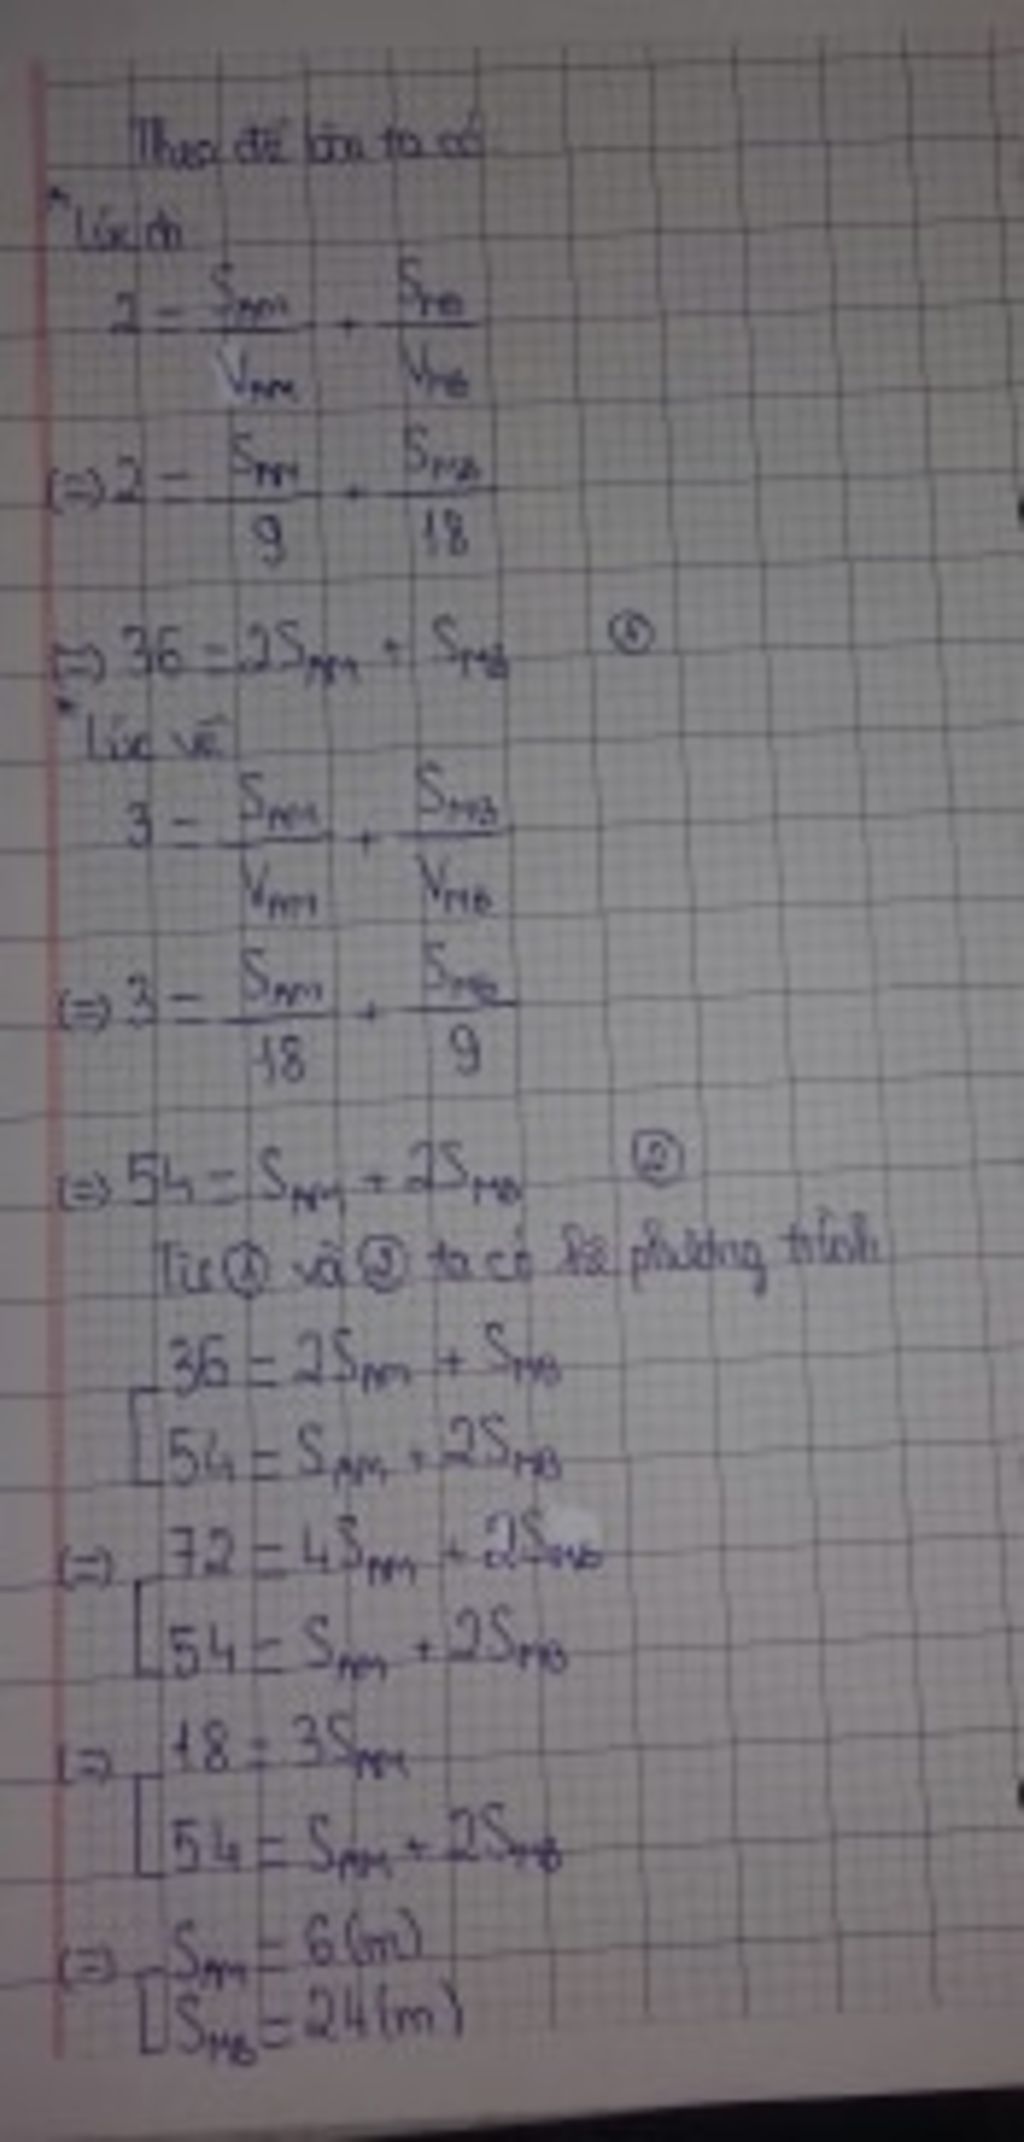 Theo đề bài ta có
* Lúc đi
2 = S_AM / V_AM + S_MB / V_MB
(=) 2 = S_AM / 9 + S_MB / 18
(=) 36 = 2S_AM + S_MB ①
* Lúc về
3 = S_AM / V_AM + S_MB / V_MB
(=) 3 = S_AM / 18 + S_MB / 9
(=) 54 = S_AM + 2S_MB ②
Từ ① và ② ta có hệ phương trình
[ 36 = 2S_AM + S_MB
54 = S_AM + 2S_MB
(=) [ 72 = 4S_AM + 2S_MB
54 = S_AM + 2S_MB
(=) [ 18 = 3S_AM
54 = S_AM + 2S_MB
(=) [ S_AM = 6 (m)
S_MB = 24 (m)